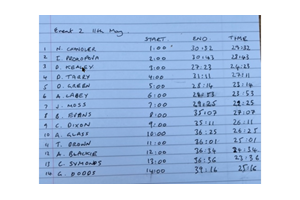 Event 2 11th May
START END TIME
1 N. CHANDLER 1:00 30:32 29:32
2 I. PROKOPERA 2:00 30:43 28:43
3 D. KEALEY 3:00 27:23 24:23
4 D. TARRY 4:00 31:11 27:11
5 D. GREEN 5:00 28:14 23:14
6 A. LABEY 6:00 53
7 J. MOSS 7:00 25
8 B. BINNS 8:00 35:07 27:07
9 C. DIXON 9:00 35:11 26:11
10 A. GLASS 10:00 36:25 26:25
11 T. BROWN 11:00 36:01 25:01
12 A. BLACKIE 12:00 36:34 24:34
13 C. SYMONDS 13:00 36:36 23:36
14 G. DODDS 14:00 39:16 25:16